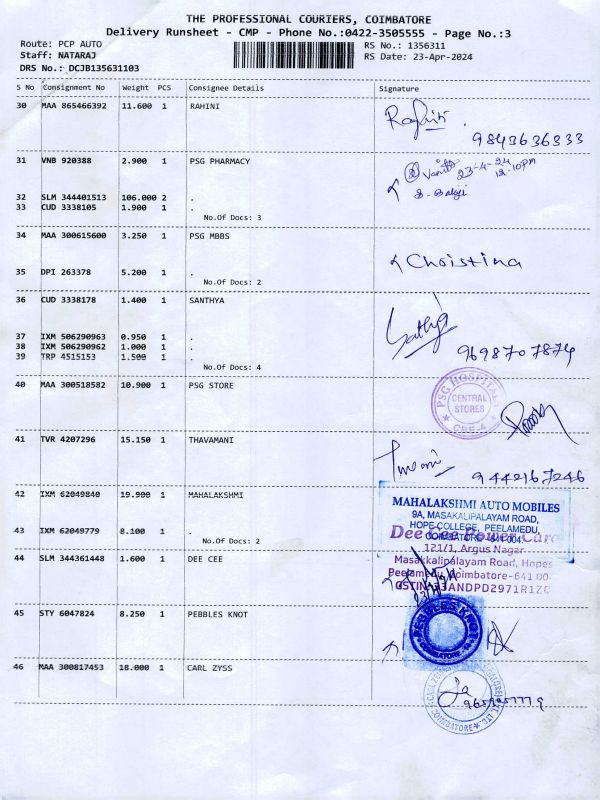 THE PROFESSIONAL COURIERS, COIMBATORE
Delivery Runsheet - CMP - Phone No.:0422-3505555 - Page No.:3
Route: PCP AUTO
RS No.: 1356311
Staff: NATARAJ
RS Date: 23-Apr-2024
DRS No.: DCJB135631103
S No Consignment No Weight PCS Consignee Details Signature
30 MAA 865466392 11.600 1 RAHINI
9843636333
31 VNB 920388 2.900 1 PSG PHARMACY
23-4-24
12.10pm
32 SLM 344401513 106.000 2 .
33 CUD 3338105 1.900 1 .
No.Of Docs: 3
34 MAA 300615600 3.250 1 PSG MBBS
Christina
35 DPI 263378 5.200 1 .
No.Of Docs: 2
36 CUD 3338178 1.400 1 SANTHYA
37 IXM 506290963 0.950 1 .
38 IXM 506290962 1.000 1 .
39 TRP 4515153 1.500 1 .
9698707874
No.Of Docs: 4
40 MAA 300518582 10.900 1 PSG STORE
PSG HOSPITAL
CENTRAL
STORES
CBE-4
41 TVR 4207296 15.150 1 THAVAMANI
9442167246
42 IXM 62049840 19.900 1 MAHALAKSHMI
MAHALAKSHMI AUTO MOBILES
9A, MASAKALIPALAYAM ROAD,
HOPE COLLEGE, PEELAMEDU,
COIMBATORE - 641 004.
43 IXM 62049779 8.100 1 .
No.Of Docs: 2
Dee Cee Power Care
121/1, Argus Nagar
Masakkalipalayam Road, Hopes
Peelamedu, Coimbatore-641 00
44 SLM 344361448 1.600 1 DEE CEE
45 STY 6047824 8.250 1 PEBBLES KNOT
PEBBLES KNOT
COIMBATORE
46 MAA 300817453 18.000 1 CARL ZYSS
COIMBATORE